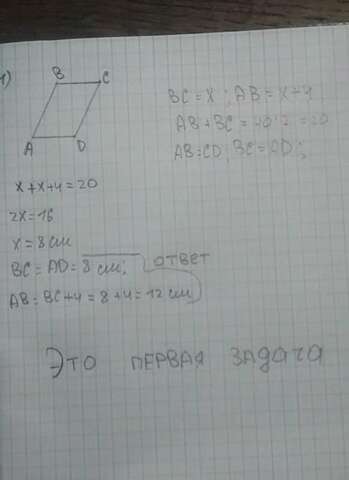 1)
B C
A D
BC = x ; AB = x+4
AB + BC = 40:2 = 20
AB = CD; BC = AD;
x + x + 4 = 20
2x = 16
x = 8 см
BC = AD = 8 см; ОТВЕТ
AB = BC + 4 = 8 + 4 = 12 см
Это ПЕРВАЯ ЗАДАЧА